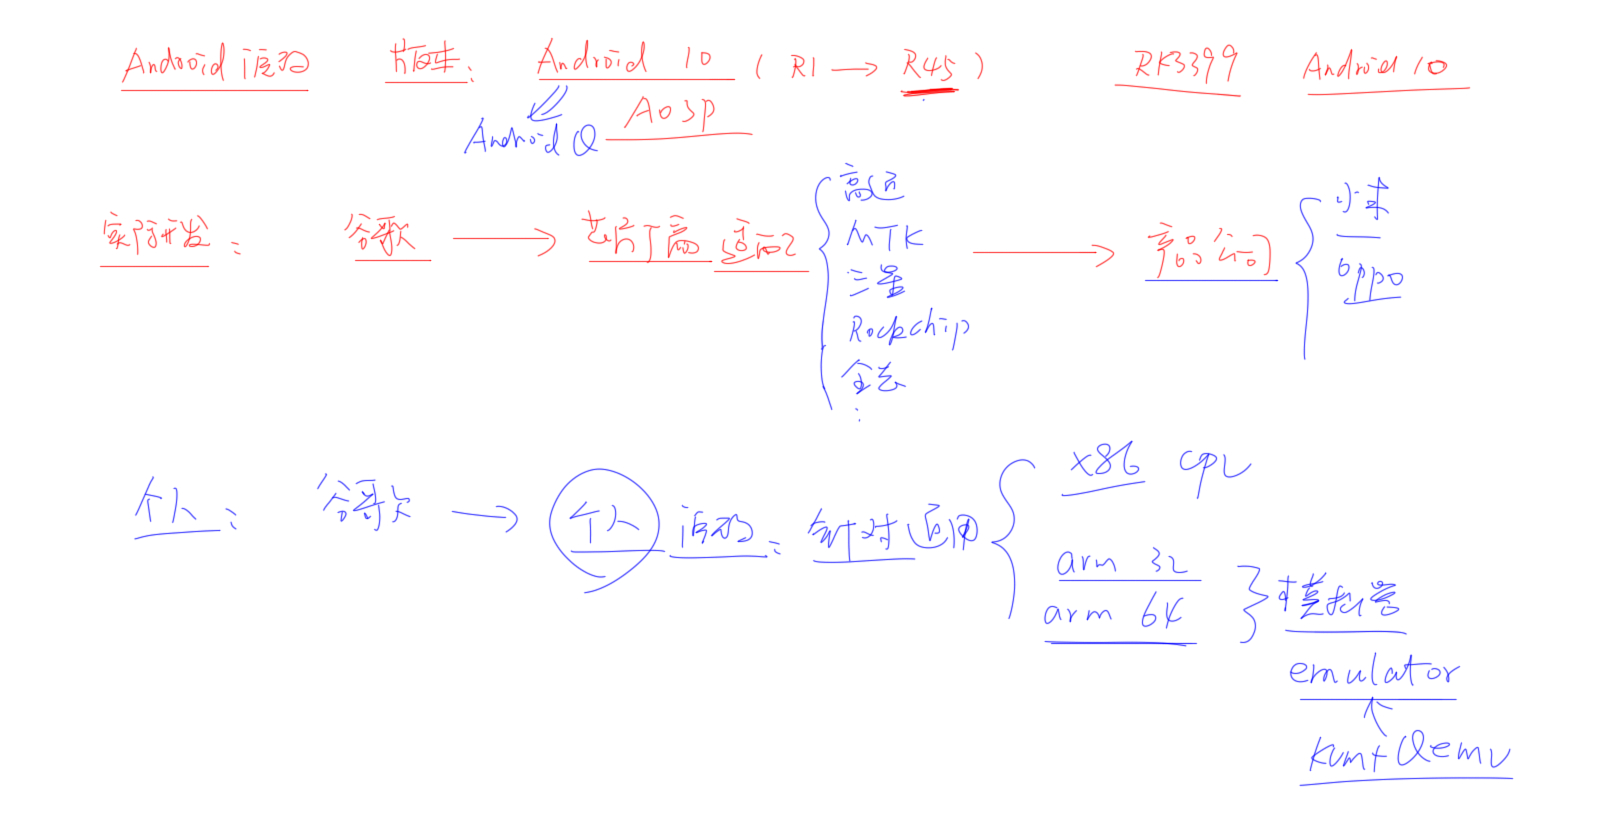 Android 源码 版本: Android 10 ( R1 → R45 ) RK3399 Android 10
Android Q AOSP
实际开发: 谷歌 → 芯片厂商 适配 { 高通 → 产品公司 { 小米
MTK oppo
三星
Rockchip
全志
⋮
个人: 谷歌 → 个人 源码: 针对适用 { x86 cpu
arm 32
arm 64 } 模拟器
emulator
↑
kvm+Qemu